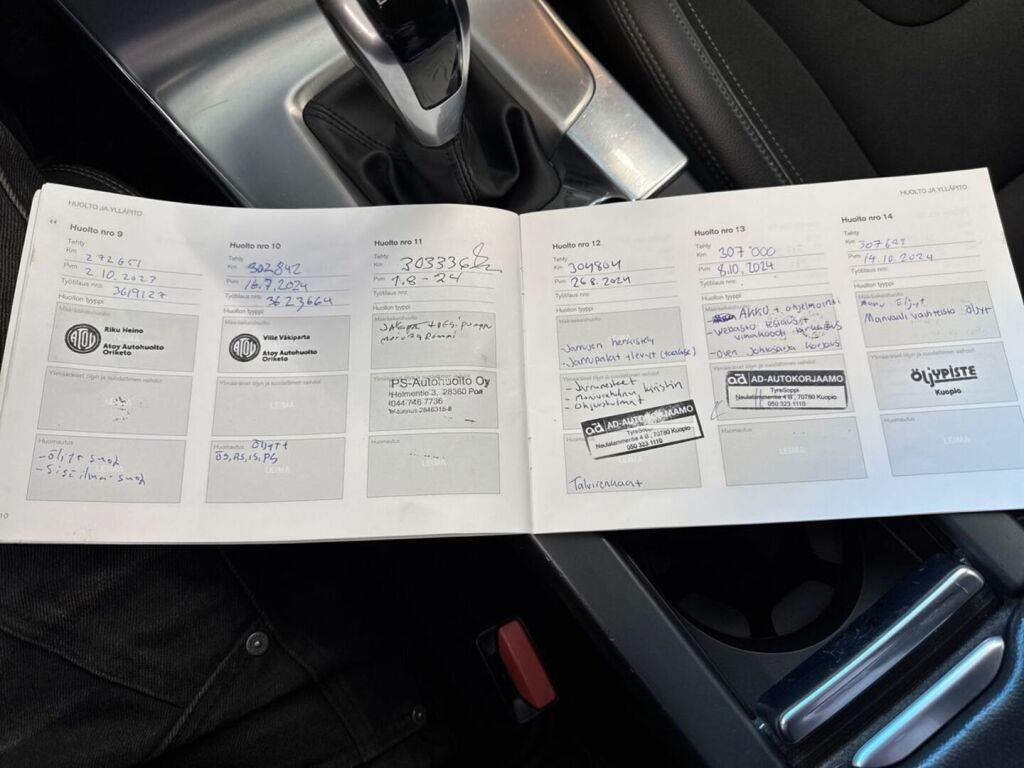 HUOLTO JA YLLÄPITO
Huolto nro 9
Tehty
Km 272651
Pvm 2.10.2023
Työtilaus nro: 3619127
Huollon tyyppi
Määräaikaishuolto
Riku Heino
ATOY
Atoy Autohuolto
Oriketo
Ylimääräiset öljyn ja suodattimen vaihdot
LEIMA
Huomautus
- Öljyt + suod
- Sisäilma suod
10
Huolto nro 10
Tehty
Km 302842
Pvm 16.7.2024
Työtilaus nro: 3623664
Huollon tyyppi
Määräaikaishuolto
Ville Väkiparta
ATOY
Atoy Autohuolto
Oriketo
Ylimääräiset öljyn ja suodattimen vaihdot
LEIMA
Huomautus Öljyt +
ÖS, RS, IS, PS
LEIMA
Huolto nro 11
Tehty
Km 303336
Pvm 1.8-24
Työtilaus nro:
Huollon tyyppi
Määräaikaishuolto
Ylimääräiset öljyn ja suodattimen vaihdot
PS-Autohuolto Oy
Helmentie 3, 28360 Pori
044 746 7736
Y-tunnus 2846316-8
Huomautus
LEIMA
Huolto nro 12
Tehty
Km 304804
Pvm 26.8.2024
Työtilaus nro:
Huollon tyyppi
Määräaikaishuolto
- Jarrujen herkistely
- Jarrupalat + levyt (taakse)
- Jarrunesteet
AD-AUTOKORJAAMO
TyreSoppi
Neulalammentie 4 B, 70780 Kuopio
050 323 1110
Huomautus
LEIMA
Talvirenkaat
HUOLTO JA YLLÄPITO
Huolto nro 13
Tehty
Km 307 000
Pvm 8.10.2024
Työtilaus nro:
Huollon tyyppi
AKKU + ohjelmointi
- Webasto testaus +
vikakoodi tarkastus
- oven johtosarja korjaus
ad AD-AUTOKORJAAMO
TyreSoppi
Neulalammentie 4 B, 70780 Kuopio
050 323 1110
Huomautus
LEIMA
Huolto nro 14
Tehty
Km 307651
Pvm 14.10.2024
Työtilaus nro:
Huollon tyyppi
Määräaikaishuolto
Moni Öljyt
Manuaali vaihteisto Öljyt
ÖLJYPISTE
Kuopio
Huomautus
LEIMA